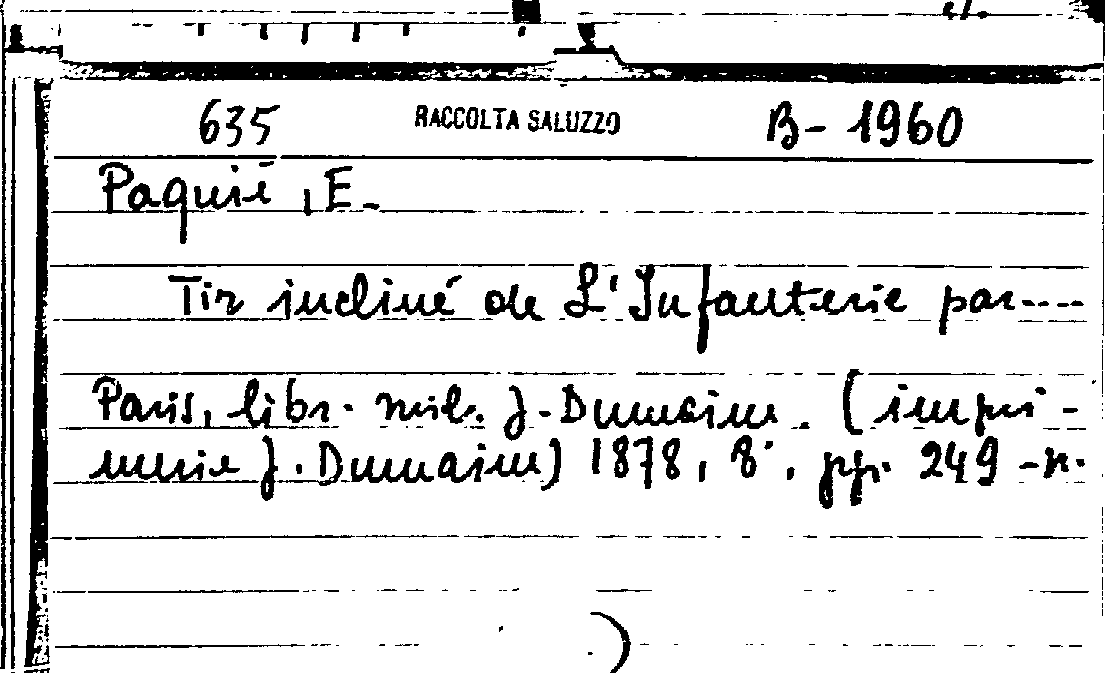 635 RACCOLTA SALUZZO B-1960
Paquié, E.
Tir incliné de L'Infanterie par----
Paris, libr. mil. J. Dumaine. (impri-
merie J. Dumaine) 1878, 8°, pp. 249-n.